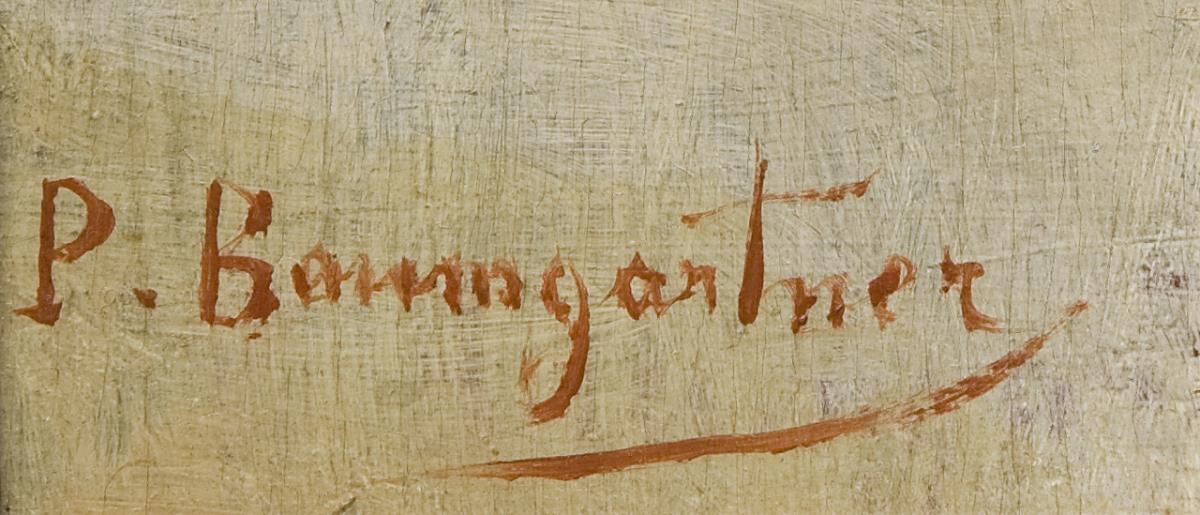 P. Baumgartner